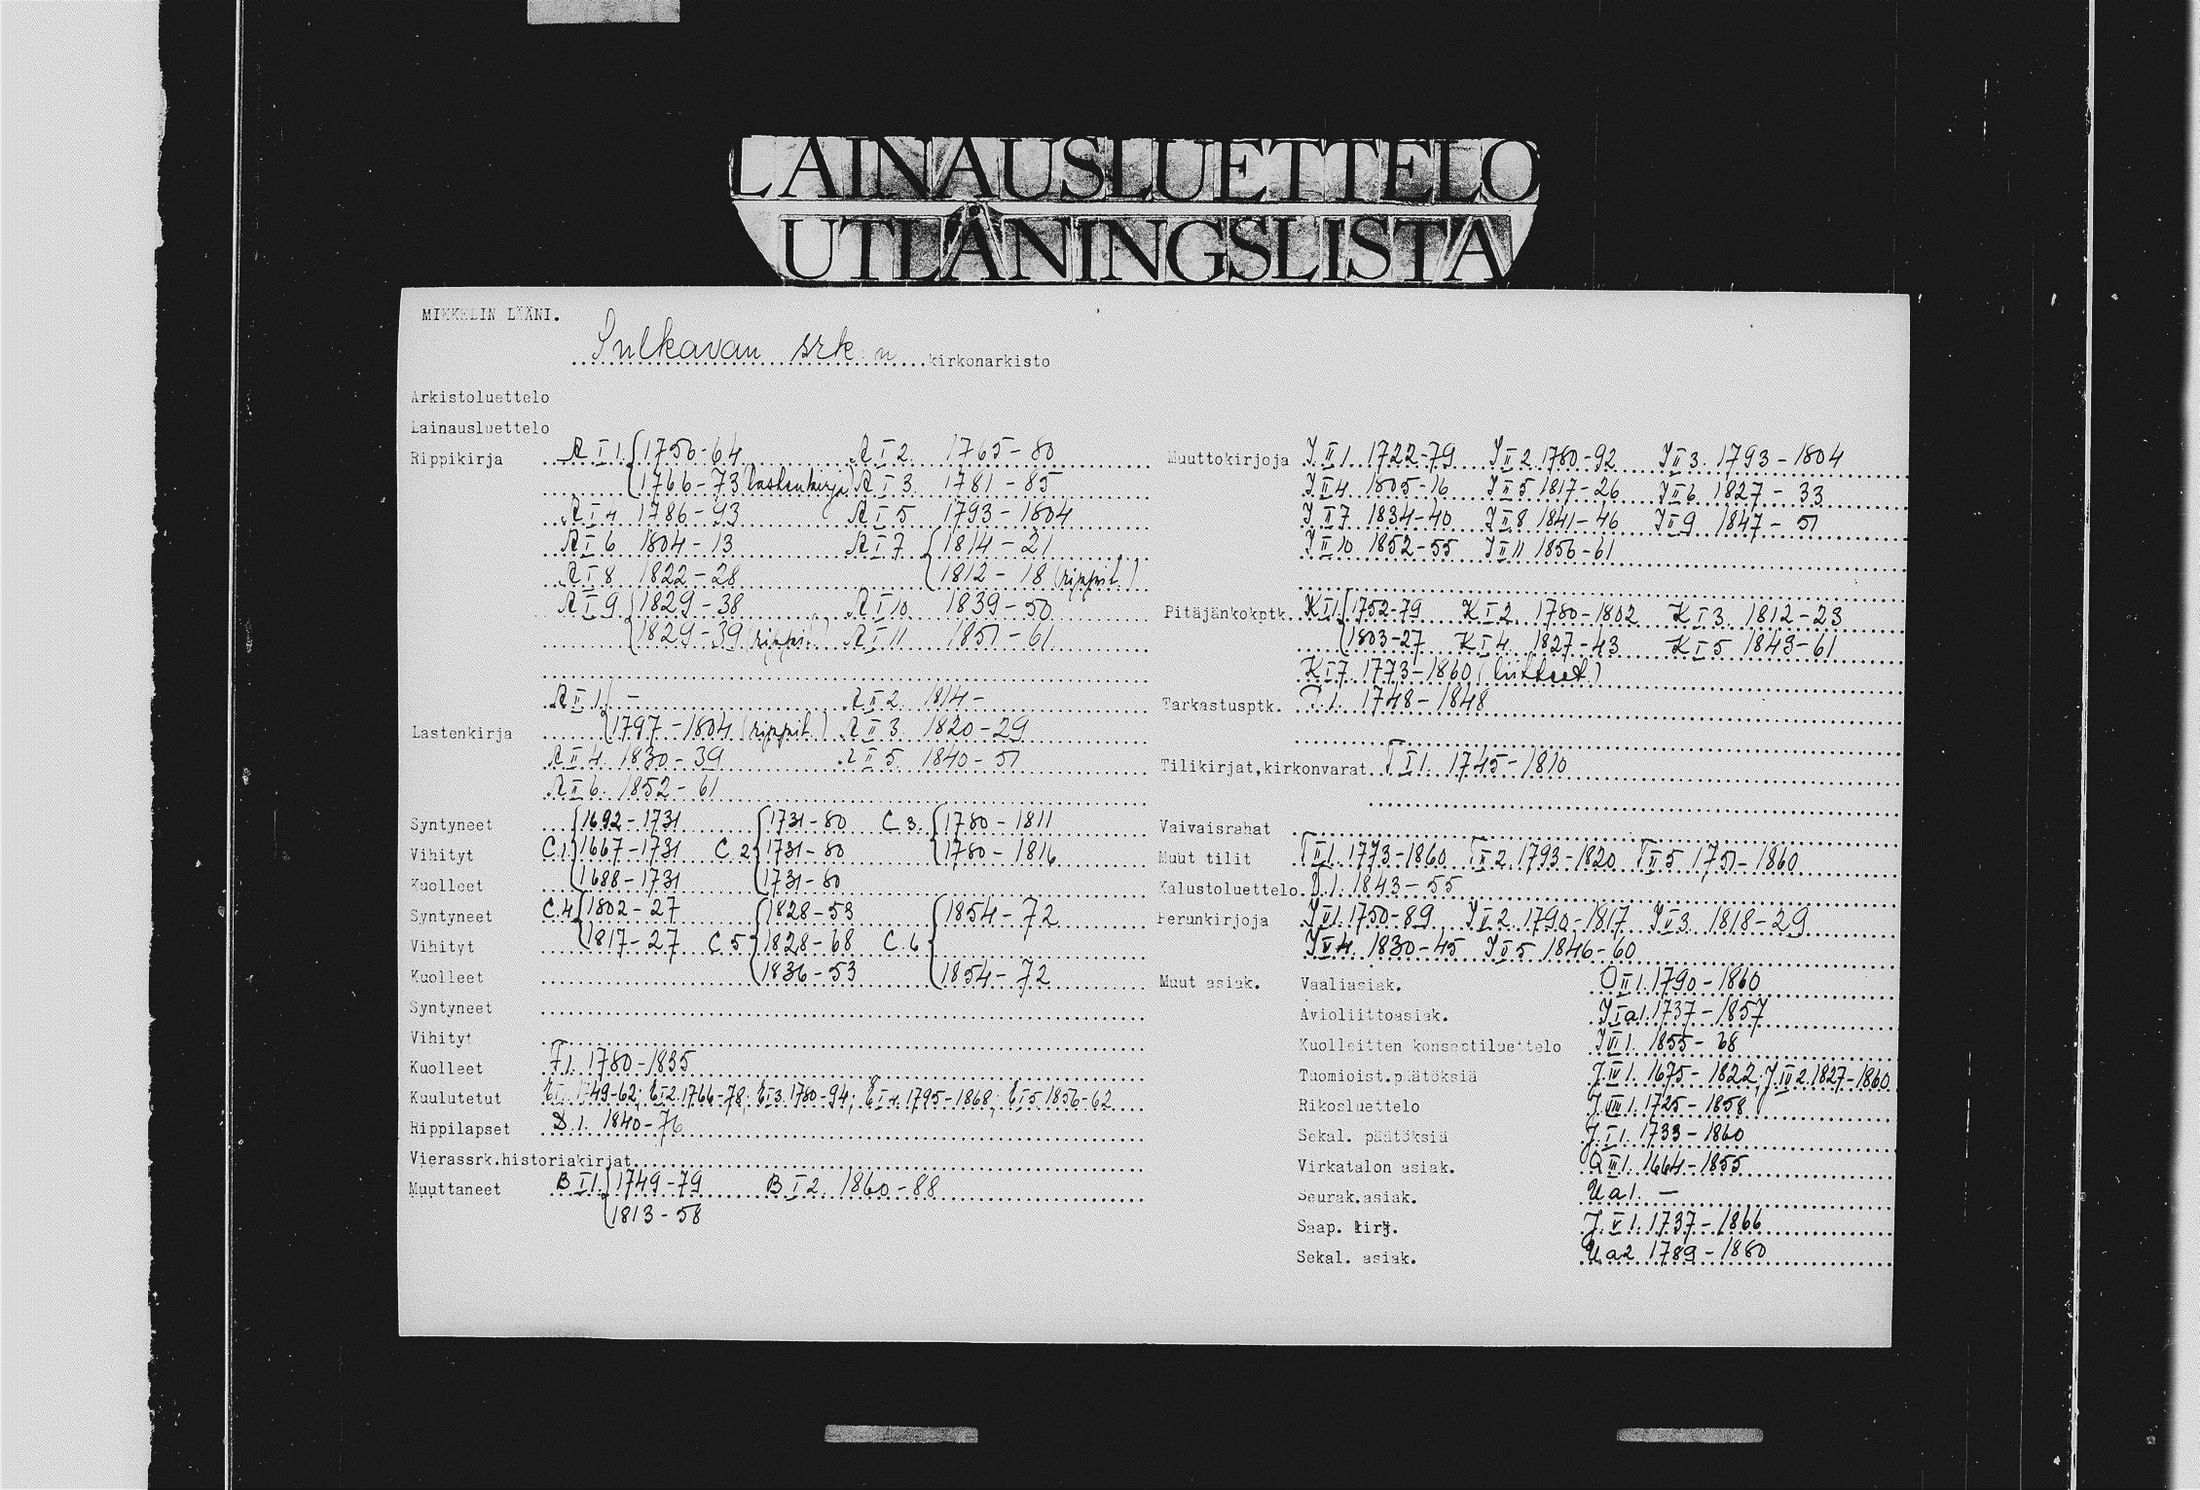 LAINAUSLUETTELO
UTLÅNINGSLISTA
MIKKELIN LÄÄNI.
Sulkavan srk:n kirkonarkisto
Arkistoluettelo
Lainausluettelo
Rippikirja A I 1. {1750-64 A I 2. 1765-80
{1766-73 (lastenkirja) A I 3. 1781-85
A I 4 1786-93 A I 5 1793-1804
A I 6 1804-13 A I 7 {1814-21
A I 8 1822-28 {1812-18 (rippil.)
A I 9 {1829-38 A I 10 1839-50
{1829-39 (rippil.) A I 11 1851-61
A II 1. { - A II 2. 1814-
Lastenkirja {1797-1804 (rippil.) A II 3. 1820-29
A II 4. 1830-39 A II 5. 1840-51
A II 6. 1852-61
Syntyneet {1692-1731 {1731-80 C 3. {1780-1811
Vihityt C.1 {1667-1731 C 2 {1731-80 {1780-1816
Kuolleet {1688-1731 {1731-80
Syntyneet C.4 {1802-27 {1828-53 {1854-72
Vihityt {1817-27 C 5 {1828-68 C 6 {
Kuolleet {1836-53 {1854-72
Syntyneet
Vihityt
Kuolleet F1. 1780-1835
Kuulutetut E I 1. 1749-62; E I 2. 1766-78; E I 3. 1780-94; E I 4. 1795-1868; E I 5 1856-62
Rippilapset D.1. 1840-76
Vierassrk.historiakirjat
Muuttaneet B I 1. {1749-79 B I 2. 1860-88
{1813-58
Muuttokirjoja J II 1. 1722-79 J II 2 1780-92 J II 3. 1793-1804
J II 4 1805-16 J II 5 1817-26 J II 6 1827-33
J II 7 1834-40 J II 8 1841-46 J II 9 1847-51
J II 10 1852-55 J II 11 1856-61
Pitäjänkokptk. K I 1 {1752-79 K I 2. 1780-1802 K I 3. 1812-23
{1803-27 K I 4. 1827-43 K I 5 1843-61
K I 7. 1773-1860 (liitteet)
Tarkastusptk. P.1. 1748-1848
Tilikirjat,kirkonvarat T I 1. 1745-1810
Vaivaisrahat
Muut tilit T II 1. 1773-1860 T II 2. 1793-1820 T II 5 1751-1860
Kalustoluettelo. 1. 1843-55
Perunkirjoja J V 1. 1750-89 J V 2. 1790-1817 J V 3. 1818-29
J V 4. 1830-45 J V 5 1846-60
Muut asiak. Vaaliasiak. O II 1. 1790-1860
Avioliittoasiak. J I a 1. 1737-1857
Kuolleitten konseptiluettelo J VI 1. 1855-68
Tuomioist.päätöksiä J. IV 1. 1675-1822; J. IV 2. 1827-1860
Rikosluettelo J. III 1. 1725-1858
Sekal. päätöksiä J. I 1. 1733-1860
Virkatalon asiak. Q II 1. 1664-1855
Seurak.asiak. U a 1. -
Saap. kirj. J. V 1. 1737-1866
Sekal. asiak. U a 2 1789-1860